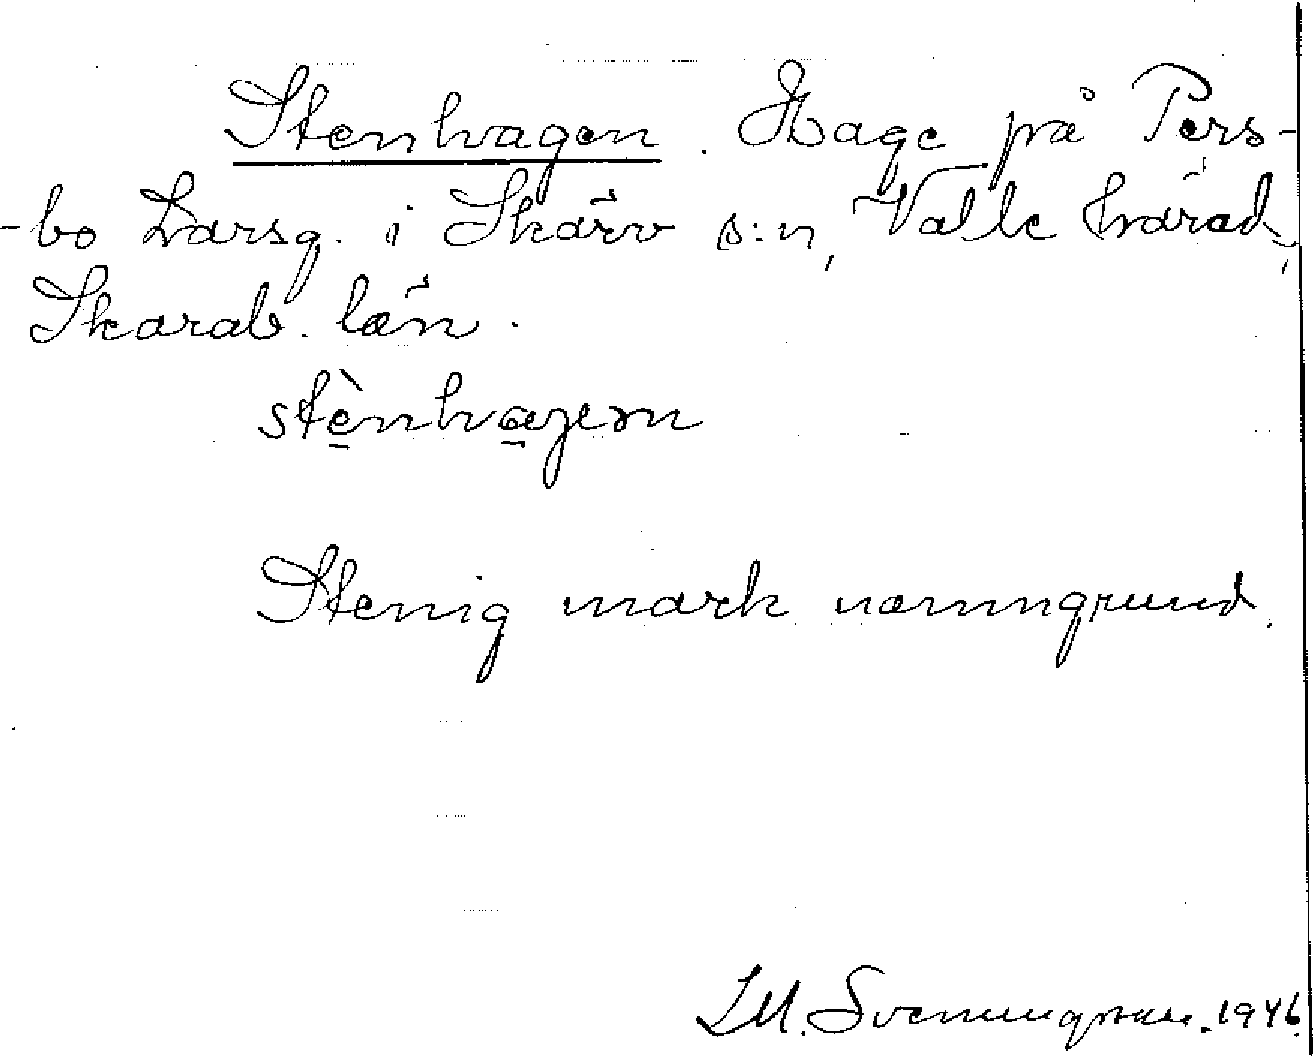 Stenhagen. Hage på Pers-
-bo Larsg. i Skärv s:n, Valle härad,
Skarab. län.
stènhagem
Stenig mark namngrund.
L.M. Svenungsson. 1946